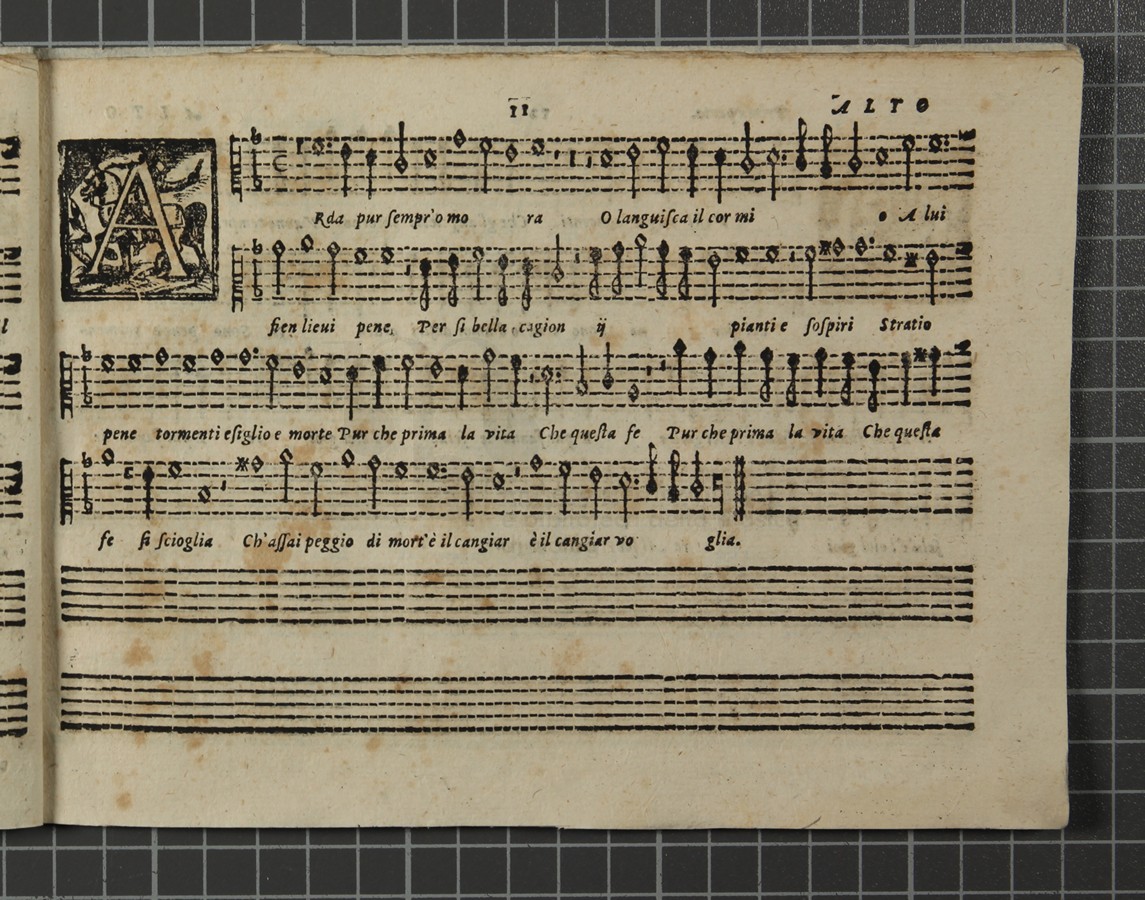 11 ALTO
A Rda pur ſempr'o mo ra O languiſca il cor mi o A lui
ſien lieui pene, Per ſi bella cagion ij pianti e ſoſpiri Stratio
pene tormenti eſiglio e morte Pur che prima la vita Che queſta fe Pur che prima la vita Che queſta
fe ſi ſcioglia Ch'aſſai peggio di mort'è il cangiar è il cangiar vo glia.